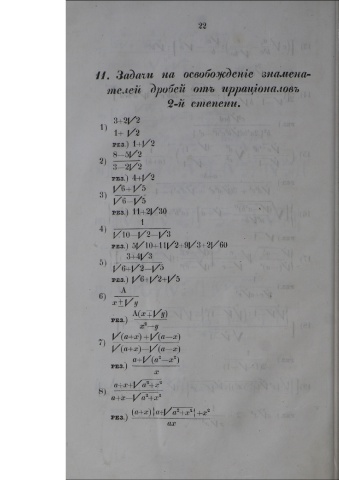 22
11. Задачи на освобожденіе знамена-
телей дробей отъ ирраціоналовъ
2-й степени.
1) (3+2√2)/(1+√2)
рез.) 1+√2
2) (8—5√2)/(3—2√2)
рез.) 4+√2
3) (√6+√5)/(√6—√5)
рез.) 11+2√30
4) 1/(√10—√2—√3)
рез.) 5√10+11√2+9√3+2√60
5) (3+4√3)/(√6+√2—√5)
рез.) √6+√2+√5
6) A/(x±√y)
рез.) A(x∓√y)/(x²—y)
7) (√(a+x)+√(a—x))/(√(a+x)—√(a—x))
рез.) (a+√(a²—x²))/x
8) (a+x+√a²+x²)/(a+x—√a²+x²)
рез.) ((a+x){a+√a²+x²}+x²)/ax